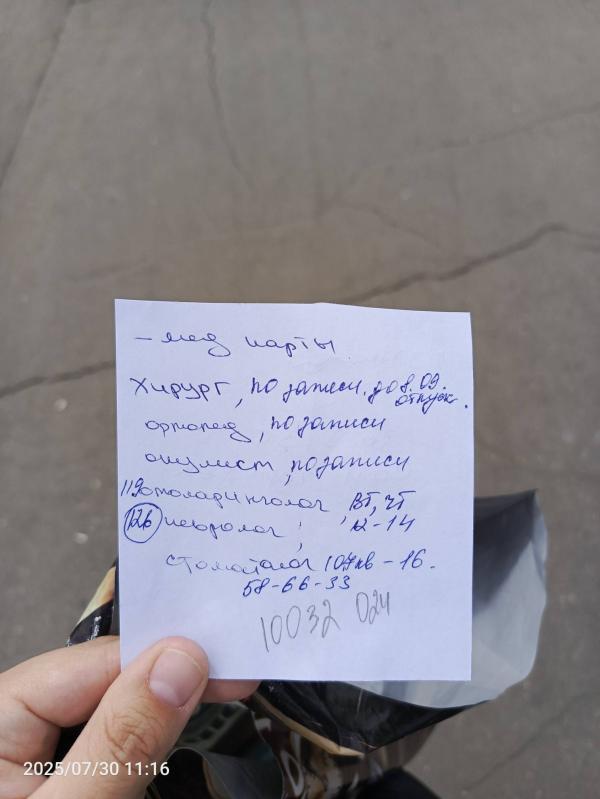 - мед карты
Хирург, по записи. до 8.09.
отпуск.
ортопед, по записи
окулист, по записи
119 отоларинголог, ВТ, ЧТ
126 невролог; 12-14
стоматолог 107кв - 16.
58-66-33
10032 024
2025/07/30 11:16